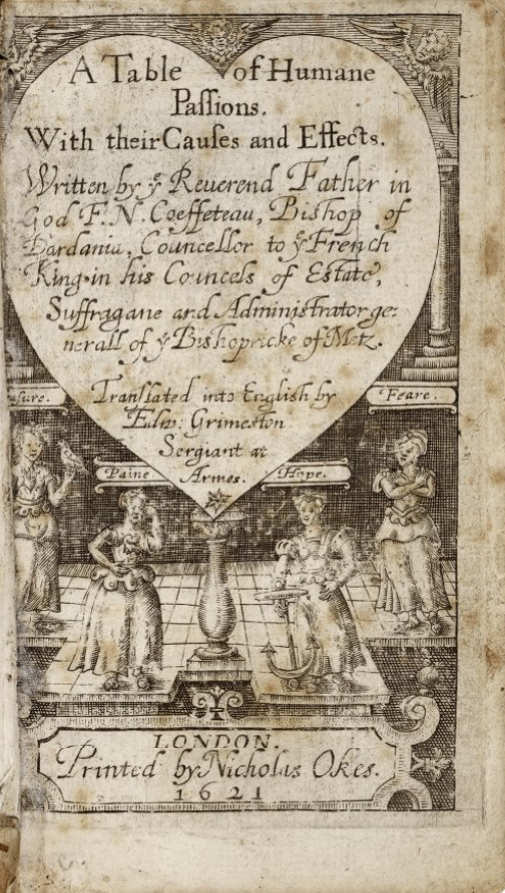 A Table of Humane
Paſſions.
With their Cauſes and Effects.
Written by yͤ Reuerend Father in
God F. N. Coeffeteau, Bishop of
Dardania, Councellor to yͤ French
King in his Councels of Estate,
Suffragane and Administrator ge:
nerall of yͤ Bishopricke of Metz.
Tranſlated into English by
Edw: Grimeston
Sergiant at
Armes.
aſure.
Feare.
Paine.
Hope.
LONDON.
Printed by Nicholas Okes.
1621